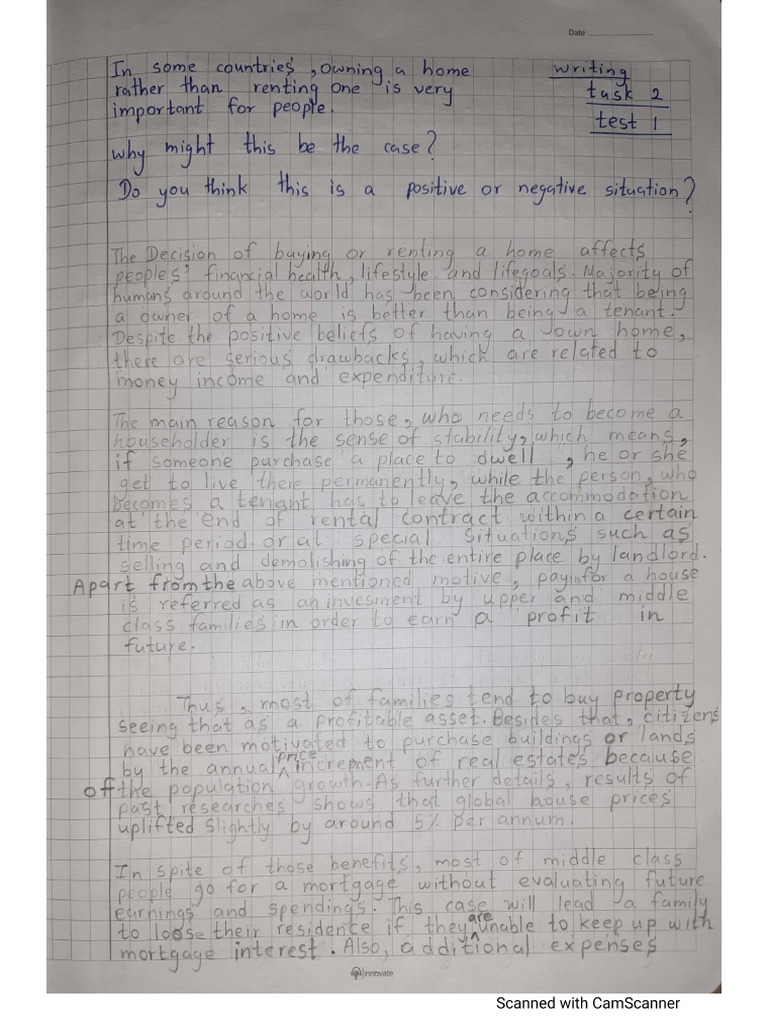 Date
In some countries, owning a home
rather than renting one is very
important for people.
writing
task 2
test 1
why might this be the case?
Do you think this is a positive or negative situation?
The Decision of buying or renting a home affects
peoples' financial health, lifestyle and lifegoals. Majority of
humans around the world has been considering that being
a owner of a home is better than being a tenant.
Despite the positive beliefs of having a own home,
there are serious drawbacks, which are related to
money income and expenditure.
The main reason for those, who needs to become a
householder is the sense of stability, which means,
if someone purchase a place to dwell, he or she
get to live there permanently, while the person, who
becomes a tenant has to leave the accommodation
at the end of rental contract within a certain
time period or at special situations such as
selling and demolishing of the entire place by landlord.
Apart from the above mentioned motive, pay for a house
is referred as an invesment by upper and middle
class families in order to earn a profit in
future.
Thus, most of families tend to buy property
seeing that as a profitable asset. Besides that, citizens
have been motivated to purchase buildings or lands
by the annual price increment of real estates because
of the population growth. As further details, results of
past researches shows that global house prices
uplifted slightly by around 5% per annum.
In spite of those benefits, most of middle class
people go for a mortgage without evaluating future
earnings and spendings. This case will lead a family
to loose their residence if they are unable to keep up with
mortgage interest. Also, additional expenses
innovate
Scanned with CamScanner